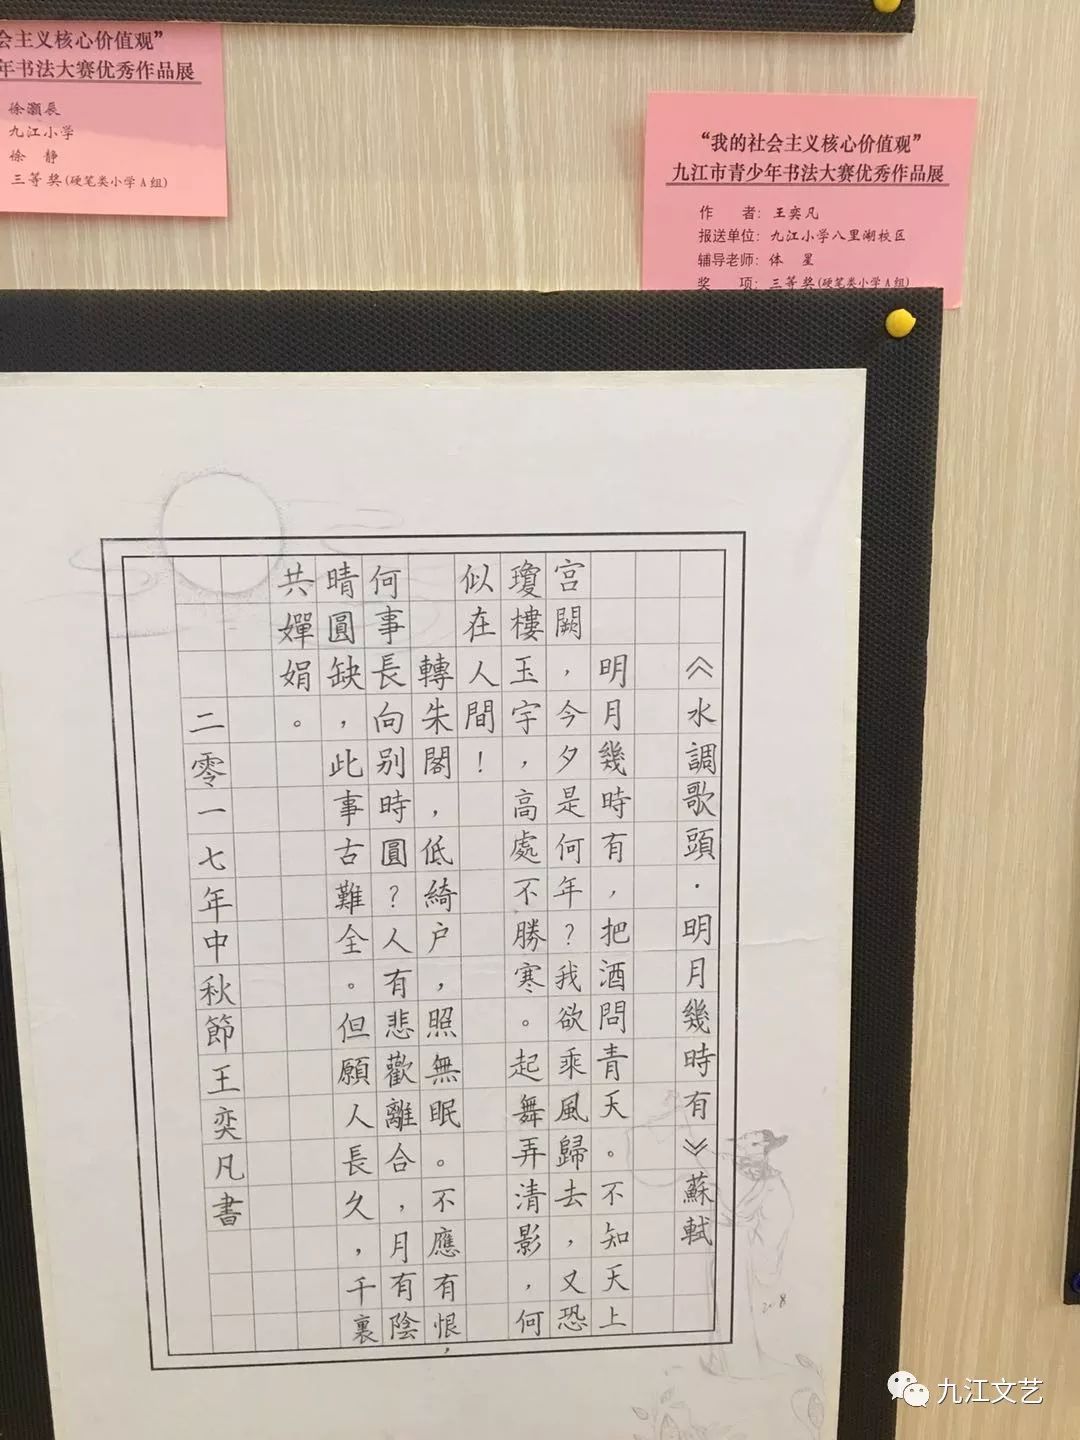 会主义核心价值观”
年书法大赛优秀作品展
徐灏辰
九江小学
徐 静
三等奖(硬笔类小学A组)
“我的社会主义核心价值观”
九江市青少年书法大赛优秀作品展
作 者：王奕凡
报送单位：九江小学八里湖校区
辅导老师：体 星
奖 项：三等奖(硬笔类小学A组)
《水調歌頭·明月幾時有》蘇軾
明月幾時有，把酒問青天。不知天上
宫闕，今夕是何年？我欲乘風歸去，又恐
瓊樓玉宇，高處不勝寒。起舞弄清影，何
似在人間！
轉朱閣，低綺户，照無眠。不應有恨，
何事長向别時圓？人有悲歡離合，月有陰
晴圓缺，此事古難全。但願人長久，千裏
共嬋娟。
二零一七年中秋節王奕凡書
九江文艺